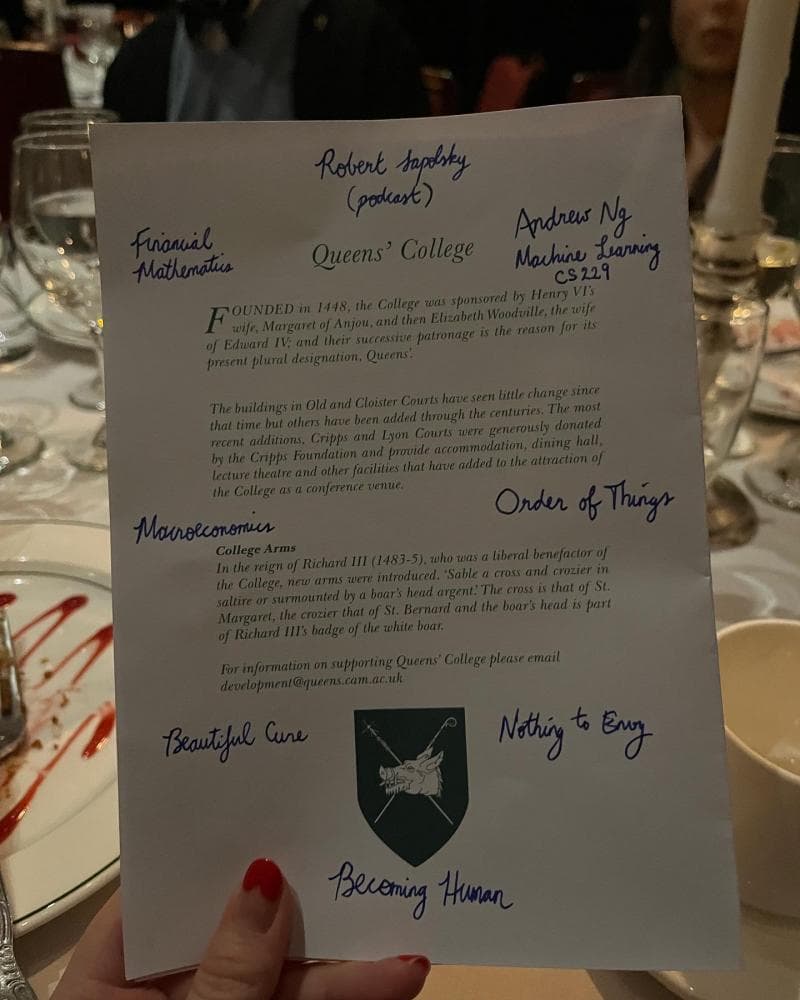 Robert Sapolsky
(podcast)
Financial
Mathematics
Andrew Ng
Machine Learning
CS229
Queens' College
FOUNDED in 1448, the College was sponsored by Henry VI's
wife, Margaret of Anjou, and then Elizabeth Woodville, the wife
of Edward IV; and their successive patronage is the reason for its
present plural designation, Queens'.
The buildings in Old and Cloister Courts have seen little change since
that time but others have been added through the centuries. The most
recent additions, Cripps and Lyon Courts were generously donated
by the Cripps Foundation and provide accommodation, dining hall,
lecture theatre and other facilities that have added to the attraction of
the College as a conference venue.
Order of Things
Macroeconomics
College Arms
In the reign of Richard III (1483-5), who was a liberal benefactor of
the College, new arms were introduced. 'Sable a cross and crozier in
saltire or surmounted by a boar's head argent.' The cross is that of St.
Margaret, the crozier that of St. Bernard and the boar's head is part
of Richard III's badge of the white boar.
For information on supporting Queens' College please email
development@queens.cam.ac.uk
Beautiful Cure
Nothing to Envy
Becoming Human